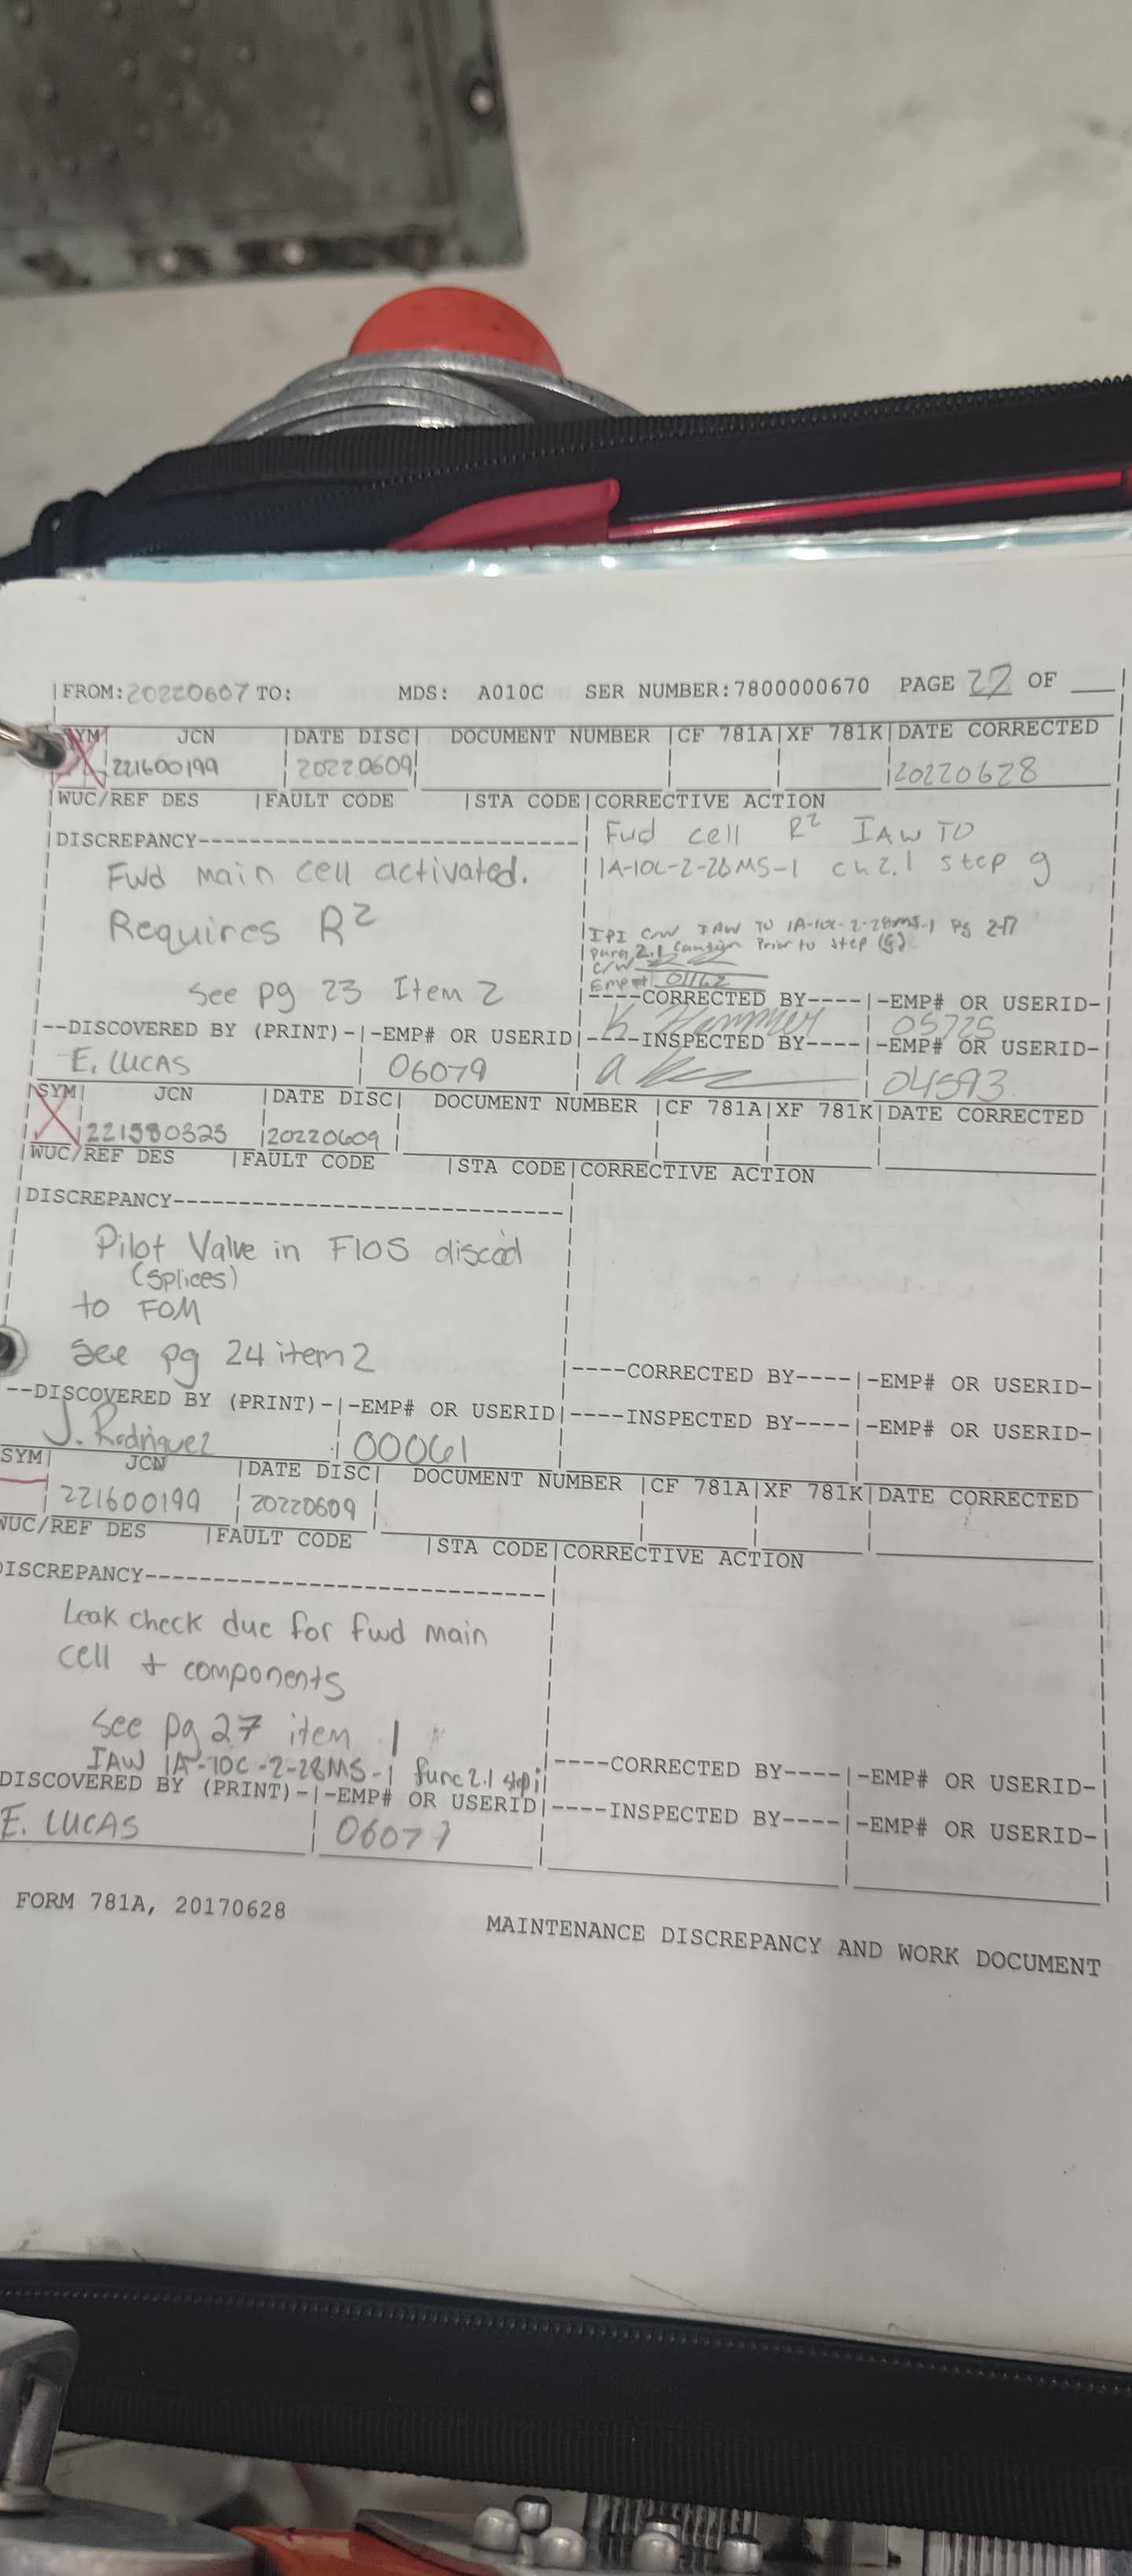 FROM: 20220607 TO: MDS: A010C SER NUMBER:7800000670 PAGE 22 OF
SYM JCN DATE DISC DOCUMENT NUMBER CF 781A XF 781K DATE CORRECTED
221600199 20220609 20220628
WUC/REF DES FAULT CODE STA CODE CORRECTIVE ACTION
DISCREPANCY
Fwd cell R² IAW TO
1A-10C-2-28MS-1 ch 2.1 step g
Fwd main cell activated.
Requires R²
See pg 23 Item 2
IPI C/W IAW TO 1A-10C-2-28MS-1 Pg 2-17
para 2.1 Caution Prior to step (g)
C/W
Emp# 01162
--DISCOVERED BY (PRINT)- -EMP# OR USERID
E. LUCAS 06079
----CORRECTED BY---- -EMP# OR USERID-
K Hammer 05725
----INSPECTED BY---- -EMP# OR USERID-
04593
SYM JCN DATE DISC DOCUMENT NUMBER CF 781A XF 781K DATE CORRECTED
221580325 20220609
WUC/REF DES FAULT CODE STA CODE CORRECTIVE ACTION
DISCREPANCY
Pilot Valve in F10S discod
(splices)
to FOM
See pg 24 item 2
--DISCOVERED BY (PRINT)- -EMP# OR USERID
J. Rodriguez 00061
----CORRECTED BY---- -EMP# OR USERID-
----INSPECTED BY---- -EMP# OR USERID-
SYM JCN DATE DISC DOCUMENT NUMBER CF 781A XF 781K DATE CORRECTED
221600199 20220609
WUC/REF DES FAULT CODE STA CODE CORRECTIVE ACTION
DISCREPANCY
Leak check due for fwd main
cell + components
See pg 27 item 1
IAW 1A-10C-2-28MS-1 func 2.1 step i
DISCOVERED BY (PRINT)- -EMP# OR USERID
E. LUCAS 06079
----CORRECTED BY---- -EMP# OR USERID-
----INSPECTED BY---- -EMP# OR USERID-
FORM 781A, 20170628
MAINTENANCE DISCREPANCY AND WORK DOCUMENT